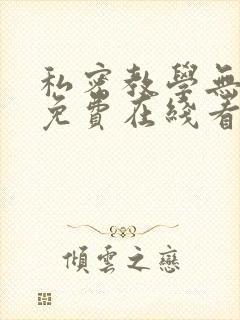 私密教學無
免費在綫看
傾雲之戀